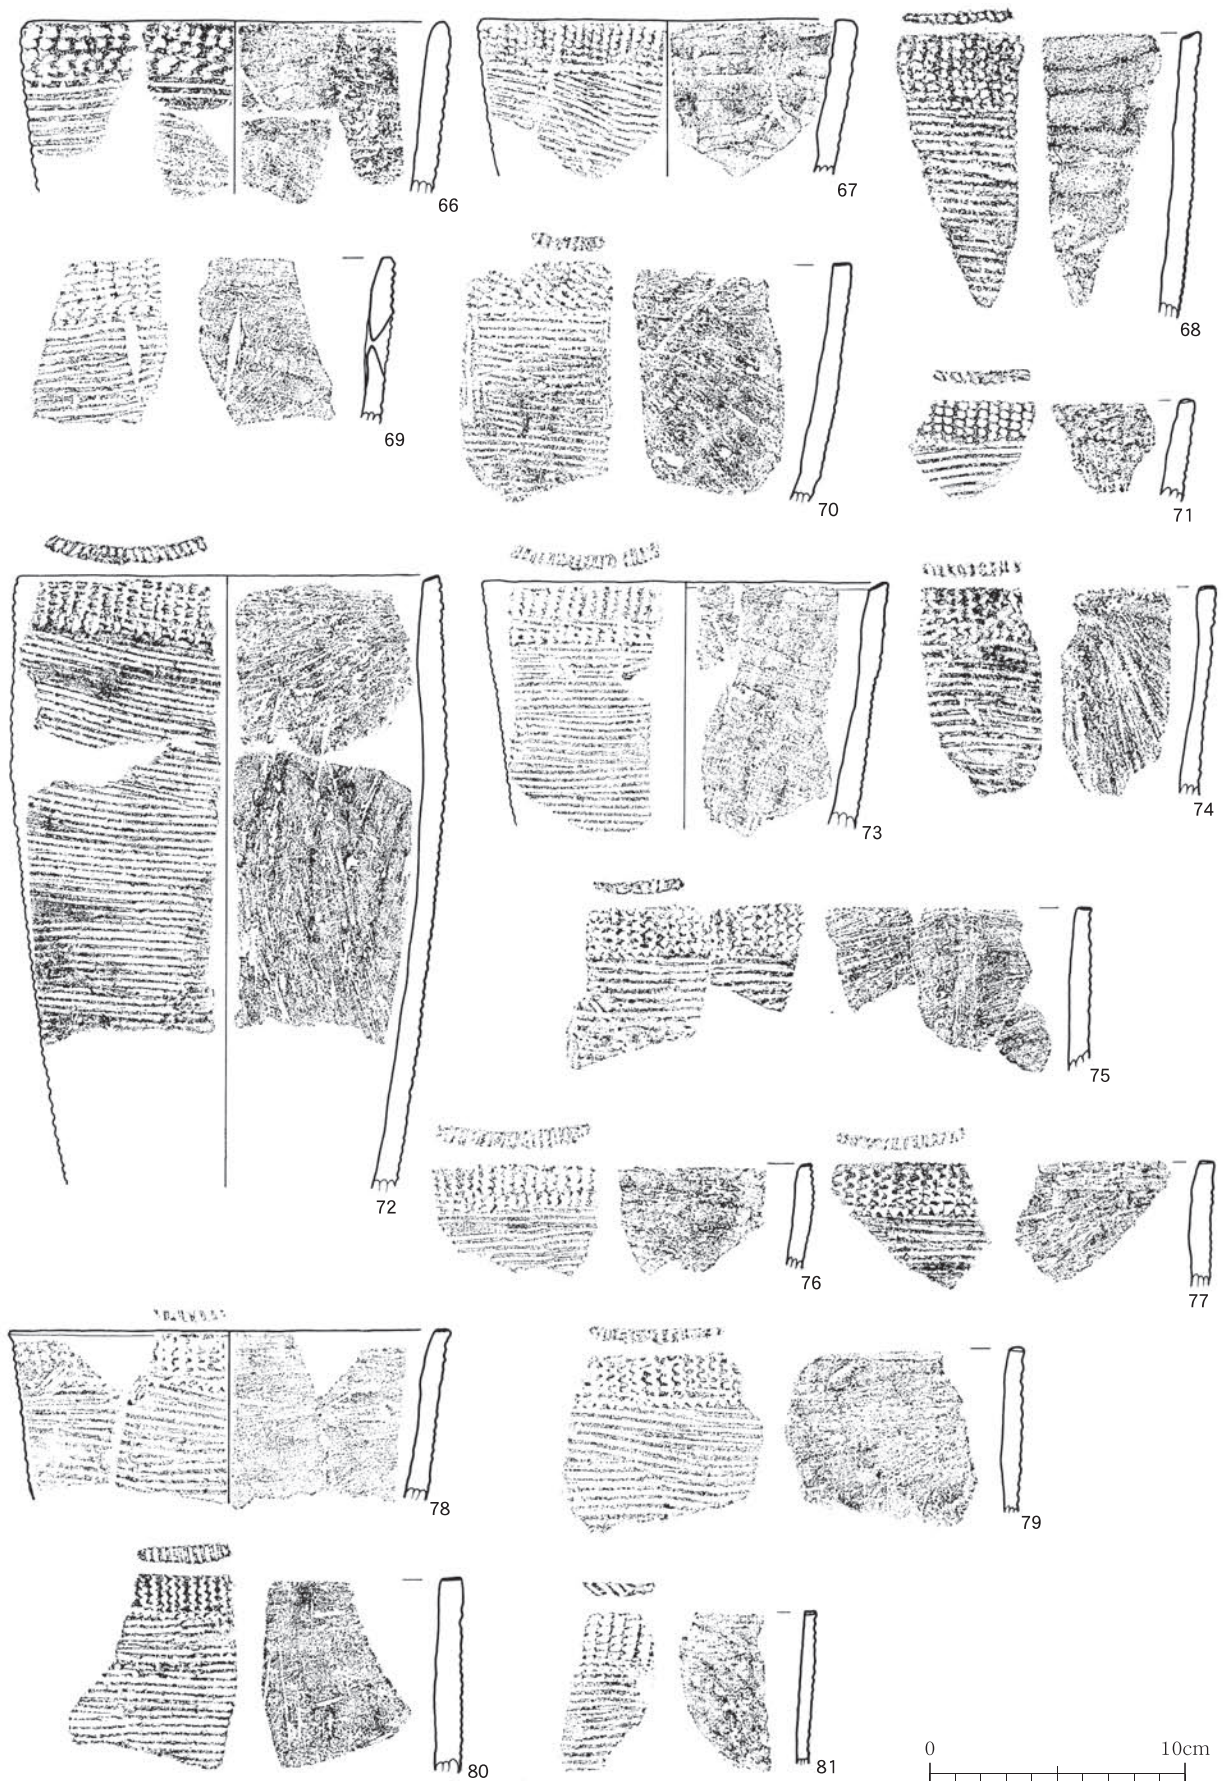 66
67
68
69
70
71
72
73
74
75
76
77
78
79
80
81
0 10cm